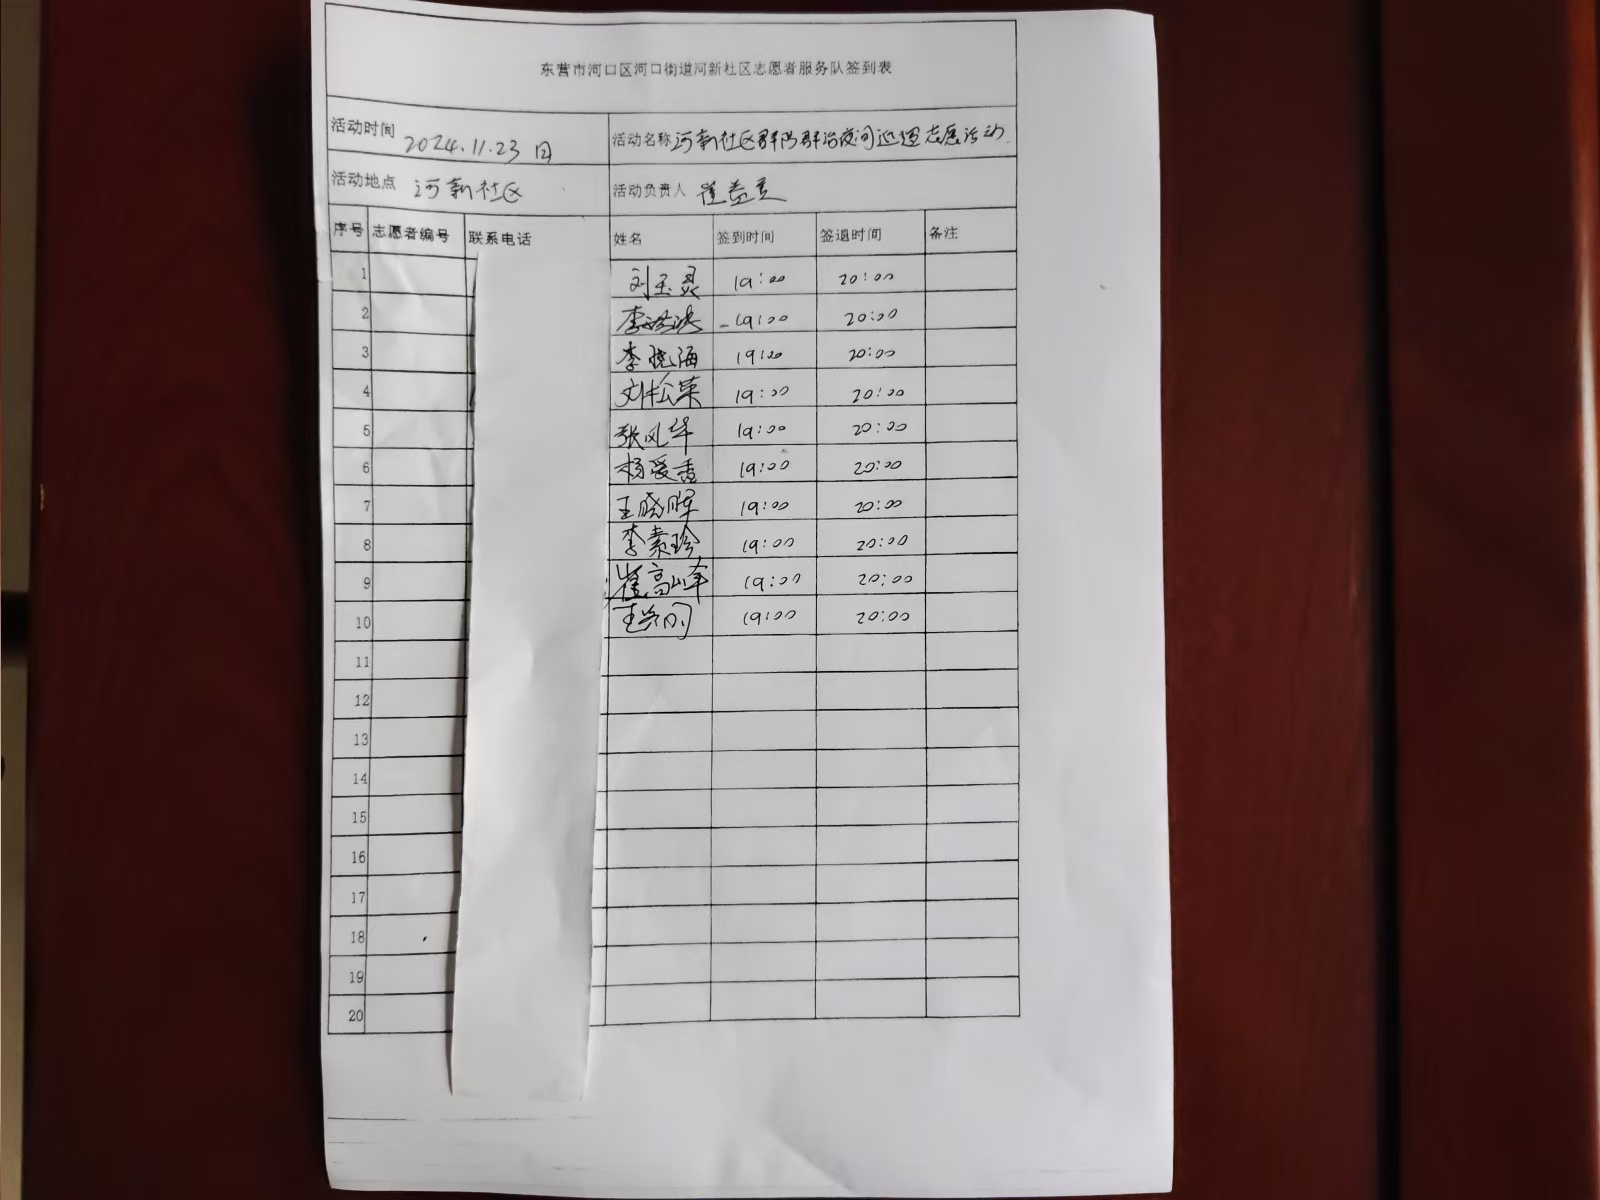 东营市河口区河口街道河新社区志愿者服务队签到表
活动时间 2024.11.23日 活动名称 河新社区群防群治夜间巡逻志愿活动
活动地点 河新社区 活动负责人 崔
序号 志愿者编号 联系电话 姓名 签到时间 签退时间 备注
1 刘玉灵 19:00 20:00
2 李洪 19:00 20:00
3 李晓海 19:00 20:00
4 刘松荣 19:00 20:00
5 张风华 19:00 20:00
6 杨爱香 19:00 20:00
7 王晓晖 19:00 20:00
8 李素珍 19:00 20:00
9 崔高峰 19:00 20:00
10 王 19:00 20:00
11
12
13
14
15
16
17
18
19
20